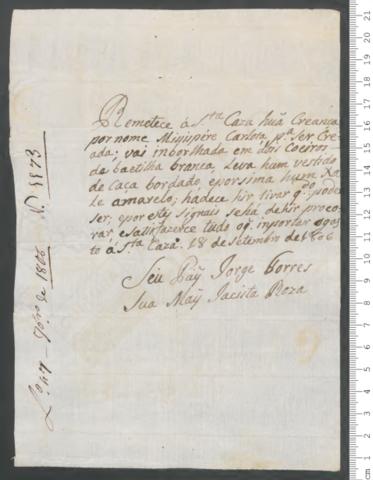 Remetece á Sta Caza huã Creanca
por nome Carlota, pa Ser Cre-
ada; vai inborlhada em dois Coeiros
de baetilha branca, Leva hum vestido
de Caca bordado, eporsima hum Xa-
le amarelo; hadece hir tirar qdo poder
ser; epor estes signais sehá dehir proco-
rar, eSatisfazerce tudo oq inportar ogas-
to á Sta Caza. 18 de Setembro de 1806
Seu Pay Jorge Torres
Sua May Jacinta Roza
Lo 47 de 1806 N. 1173